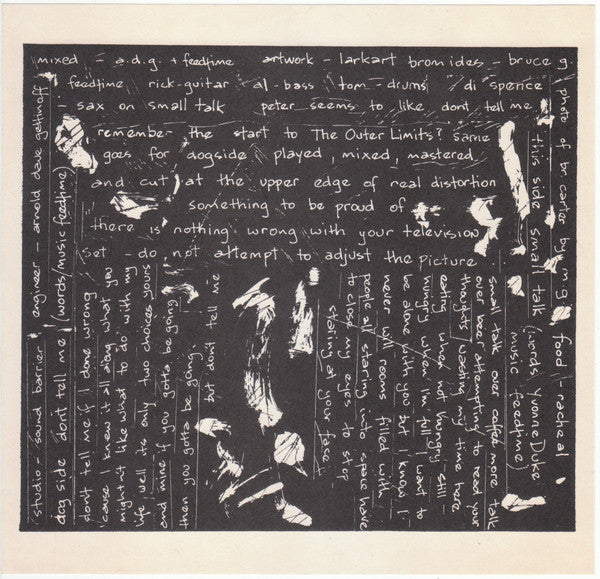 mixed - a.d.g. + feedtime artwork - larkart bromides - bruce g.
feedtime rick-guitar al-bass tom-drums di spence
- sax on small talk peter seems to like dont tell me
remember the start to The Outer Limits? same
goes for aogside played, mixed, mastered
and cut at the upper edge of real distortion
something to be proud of
there is nothing wrong with your television
set - do not attempt to adjust the picture
studio - sound barrier engineer - arnold dave gettinoff
dog side dont tell me (words/music feedtime)
dont tell me if i done wrong
'cause i knew it all along what you
might-nt like what to do with my
life well its only two choices yours
and mine if you gotta be going
then you gotta be going
but dont tell me
photo of br. carter by m.g. food - racheal.
this side small talk (words, yvonne Duke
music feedtime)
small talk over coffee more talk
over beer attempting to read your
thoughts / wasting my time here
eating when not hungry still -
hungry when i'm full i want to
be alone with you but i know i
never will rooms filled with
people all staring into space have
to close my eyes to stop
staring at your face